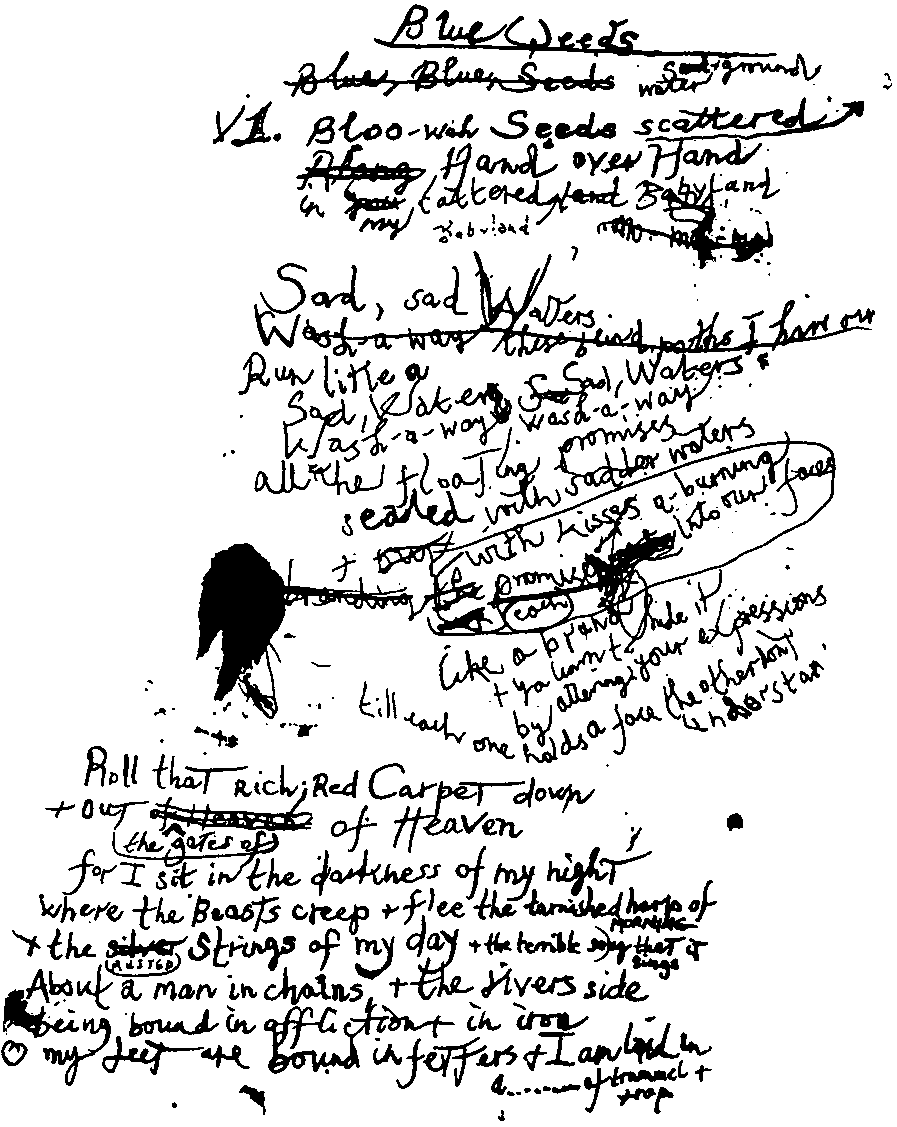 Blue Seeds
Blue, Blue, Seeds water ground
V1. Bloo-wah Seeds scattered
Along Hand over Hand
in your my tattered land Babyland
Babyland
Sad, sad Waters
Wash-a way these I have
Run like a
Sad, Waters, Sad, Waters
Wash-a-way, wash-a-way
all the floating promises
sealed with sadder waters
+ with kisses a-burning into our faces
branding the promise
each
like a brand
+ you learn to hide it
by altering your expressions
till each one holds a face the other don't understan'
Roll that Rich, Red Carpet down
+ out of Heaven of Heaven
the gates of
for I sit in the darkness of my night
where the Beasts creep + flee the tarnished harp of
+ the silver Strings of my day + the terrible song that it sings
RUSTED
About a man in chains, + the rivers side
being bound in affliction + in iron
my feet are bound in fetters + I am laid in
a........ of trammel + trap